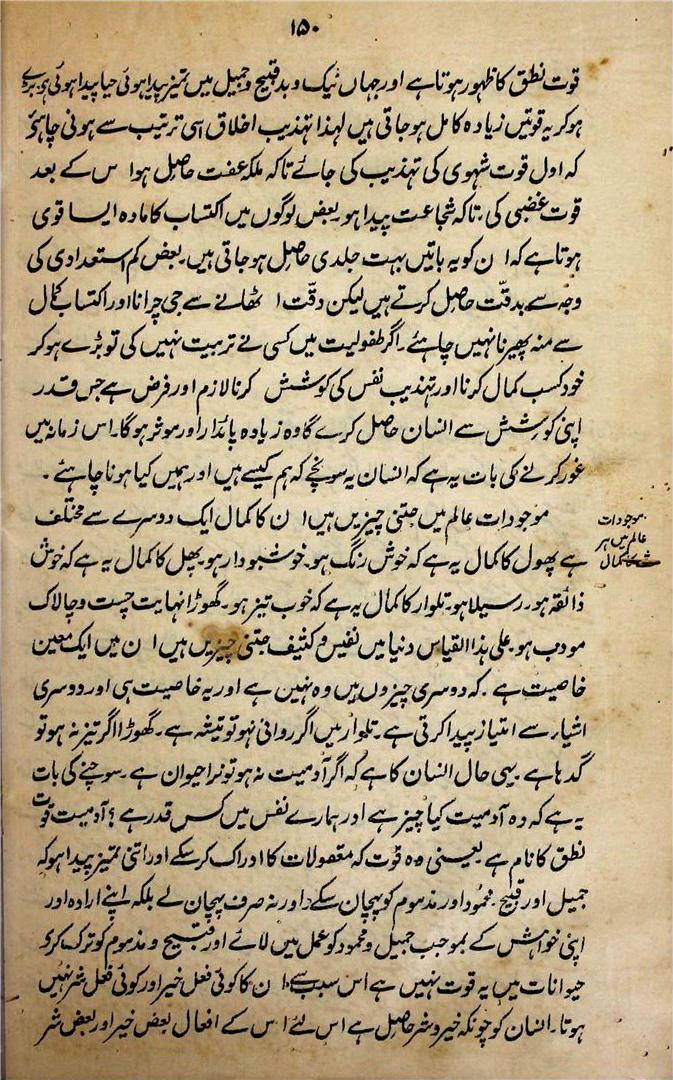 ۱۵۰
قوت نطق کا ظہور ہوتا ہے اور جہاں نیک و بد قبیح و جمیل میں تمیز پیدا ہوئی حیا پیدا ہوئی
ہو کر یہ قوتیں زیادہ کامل ہو جاتی ہیں لہذا تہذیب اخلاق اسی ترتیب سے ہونی چاہئے
کہ اول قوت شہوی کی تہذیب کی جائے تاکہ ملکہ عفت حاصل ہو ا س کے بعد
قوت غضبی کی تاکہ شجاعت پیدا ہو۔ بعض لوگوں میں اکتساب کا مادہ ایسا قوی
ہوتا ہے کہ ا ن کو یہ باتیں بہت جلدی حاصل ہو جاتی ہیں۔ بعض کم استعدادی کی
وجہ سے بدقّت حاصل کرتے ہیں لیکن دقّت ا ٹھانے سے جی چرانا اور اکتساب کمال
سے منہ پھیرنا نہیں چاہئے۔ اگر طفولیت میں کسی نے تربیت نہیں کی تو بڑے ہو کر
خود کسب کمال کرنا اور تہذیب نفس کی کوشش کرنا لازم اور فرض ہے جس قدر
اپنی کوشش سے انسان حاصل کرے گا وہ زیادہ پائدار اور موثر ہوگا۔ اس زمانہ میں
غور کرنے کی بات یہ ہے کہ انسان یہ سونچے کہ ہم کیسے ہیں اور ہمیں کیا ہونا چاہئے ۔
موجودات عالم میں جتنی چیزیں ہیں ا ن کا کمال ایک دوسرے سے مختلف
موجودات
عالم میں ہر
شے کا کمال
ہے پھول کا کمال یہ ہے کہ خوش رنگ ہو۔ خوشبودار ہو۔ پھل کا کمال یہ ہے کہ خوش
ذائقہ ہو۔ رسیلا ہو۔ تلوار کا کمال یہ ہے کہ خوب تیز ہو۔ گھوڑا نہایت چست و چالاک
مودب ہو۔ علی ہذا القیاس دنیا میں نفیس و کثیف جتنی چیزیں ہیں ا ن میں ایک معین
خاصیت ہے ۔ کہ دوسری چیزوں میں وہ نہین ہے اور یہ خاصیت ہی اور دوسری
اشیار سے امتیاز پیدا کرتی ہے۔ تلوار میں اگر روانی نہو تو تیشہ ہے۔ گھوڑا اگر تیز نہ ہو تو
گدہا ہے۔ یہی حال انسان کا ہے کہ اگر آدمیت نہ ہو تو نرا حیوان ہے۔ سوچنے کی بات
یہ ہے کہ وہ آدمیت کیا چیز ہے اور ہمارے نفس میں کس قدر ہے ؟ آدمیت قوت
نطق کا نام ہے یعنی وہ قوت کہ معقولات کا ادراک کر سکے اور اتنی تمیز پیدا ہو کہ
جمیل اور قبیح۔ محمود اور مذموم کو پہچان سکے اور نہ صرف پہچان لے بلکہ اپنے ارادہ اور
اپنی خواہش کے بموجب جمیل و محمود کو عمل میں لائے اور قبیح و مذموم کو ترک کرے
حیوانات میں یہ قوت نہیں ہے اس سبب سے ا ن کا کوئی فعل خیر اور کوئی فعل شر نہیں
ہوتا۔ انسان کو چونکہ خیر و شر حاصل ہے اس لئے ا س کے افعال بعض خیر اور بعض شر